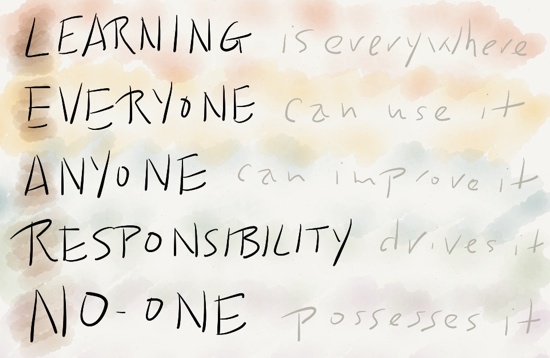 LEARNING is everywhere
EVERYONE can use it
ANYONE can improve it
RESPONSIBILITY drives it
NO-ONE possesses it